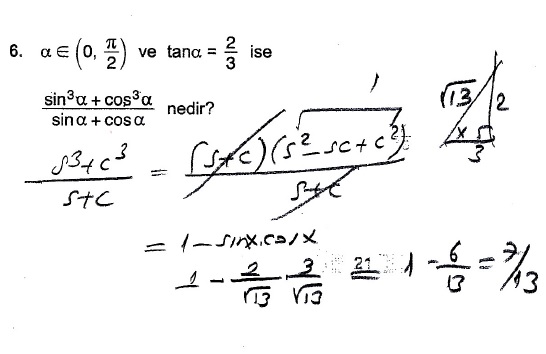 6. α ∈ (0, π/2) ve tanα = 2/3 ise
(sin³α + cos³α)/(sinα + cosα) nedir?
√13 2 x 3
(s³+c³)/(s+c) = (s+c)(s² - sc + c²)/(s+c) 1
= 1 - sinx.cosx
1 - 2/√13 3/√13 = 21 1 - 6/13 = 7/13